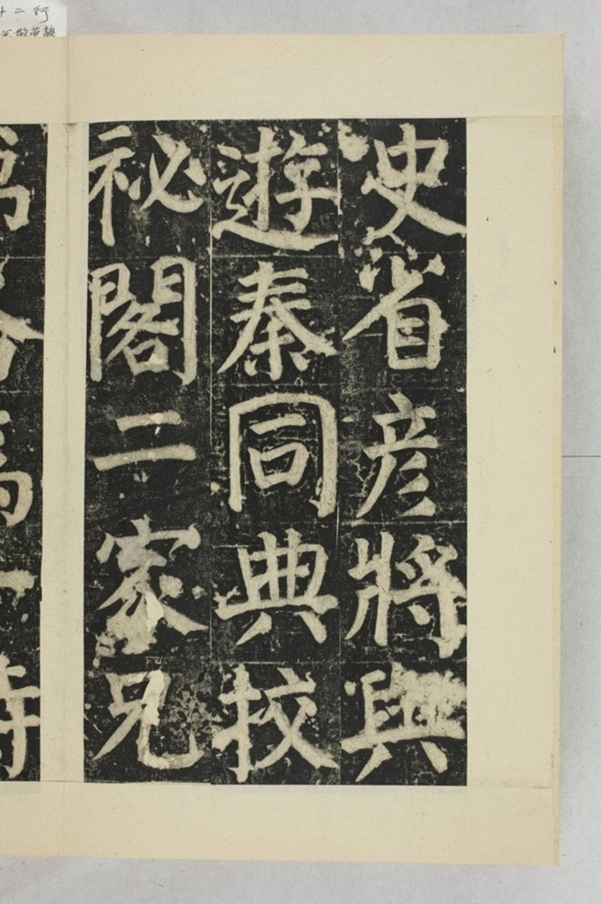 史省彦將與
遊秦同典校
祕閣二家兄
爲
時
十二行